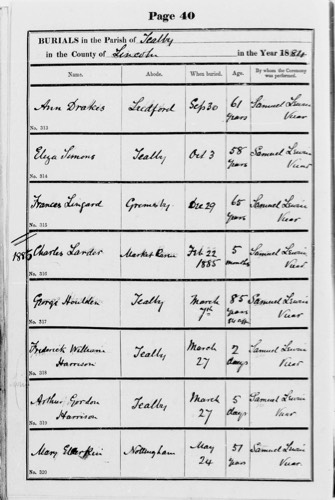 Page 40
BURIALS in the Parish of Tealby
in the County of Lincoln in the Year 1884
Name. Abode. When buried. Age. By whom the Ceremony was performed.
Ann Drakes Ludford Sep 30 61 years Samuel Lewin Vicar
No. 313
Eliza Simons Tealby Oct 3 58 years Samuel Lewin Vicar
No. 314
Frances Lingard Gremesby Dec 29 65 years Samuel Lewin Vicar
No. 315
1885
Charles Larder Market Rasen Feb 22 1885 5 months Samuel Lewin Vicar
No. 316
George Houlden Tealby March 7th 85 years Samuel Lewin Vicar
No. 317
Frederick William Harrison Tealby March 27 2 days Samuel Lewin Vicar
No. 318
Arthur Gordon Harrison Tealby March 27 5 days Samuel Lewin Vicar
No. 319
Mary Nottingham May 24 57 years Samuel Lewin Vicar
No. 320